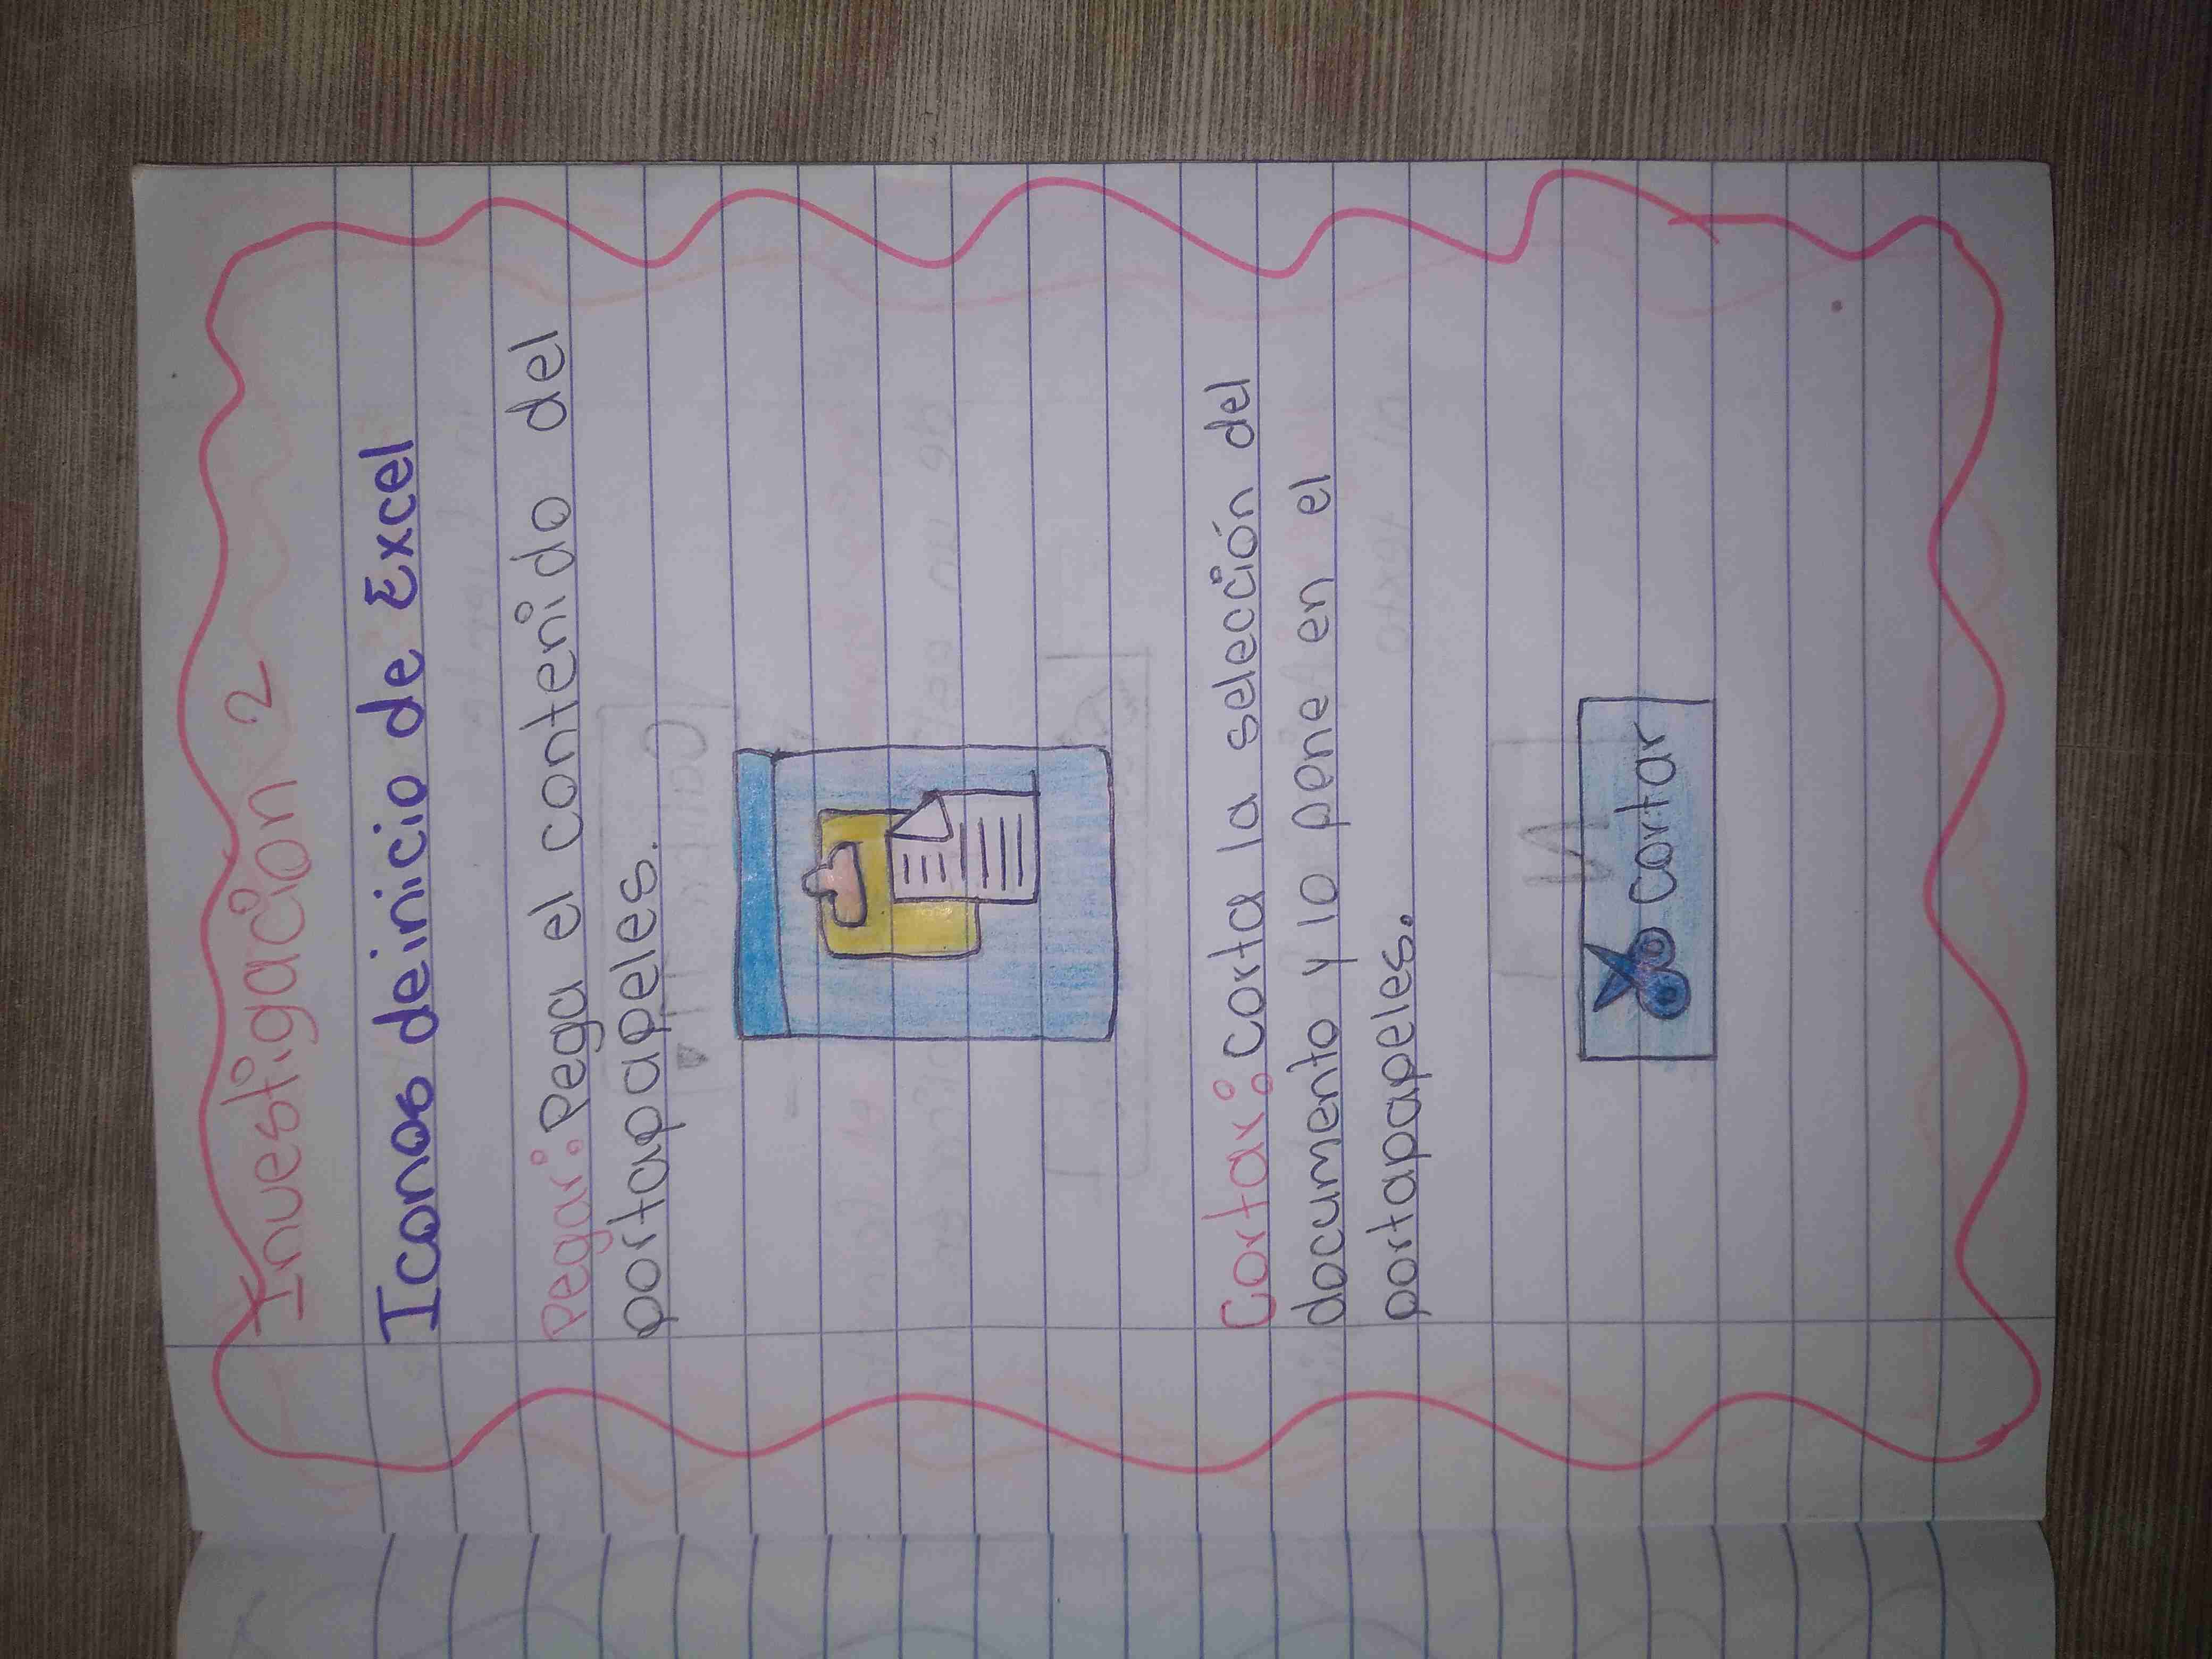 Investigación 2
Iconos de inicio de Excel
Pegar: Pega el contenido del
portapapeles.
Cortar: corta la selección del
documento y lo pene en el
portapapeles.
cortar